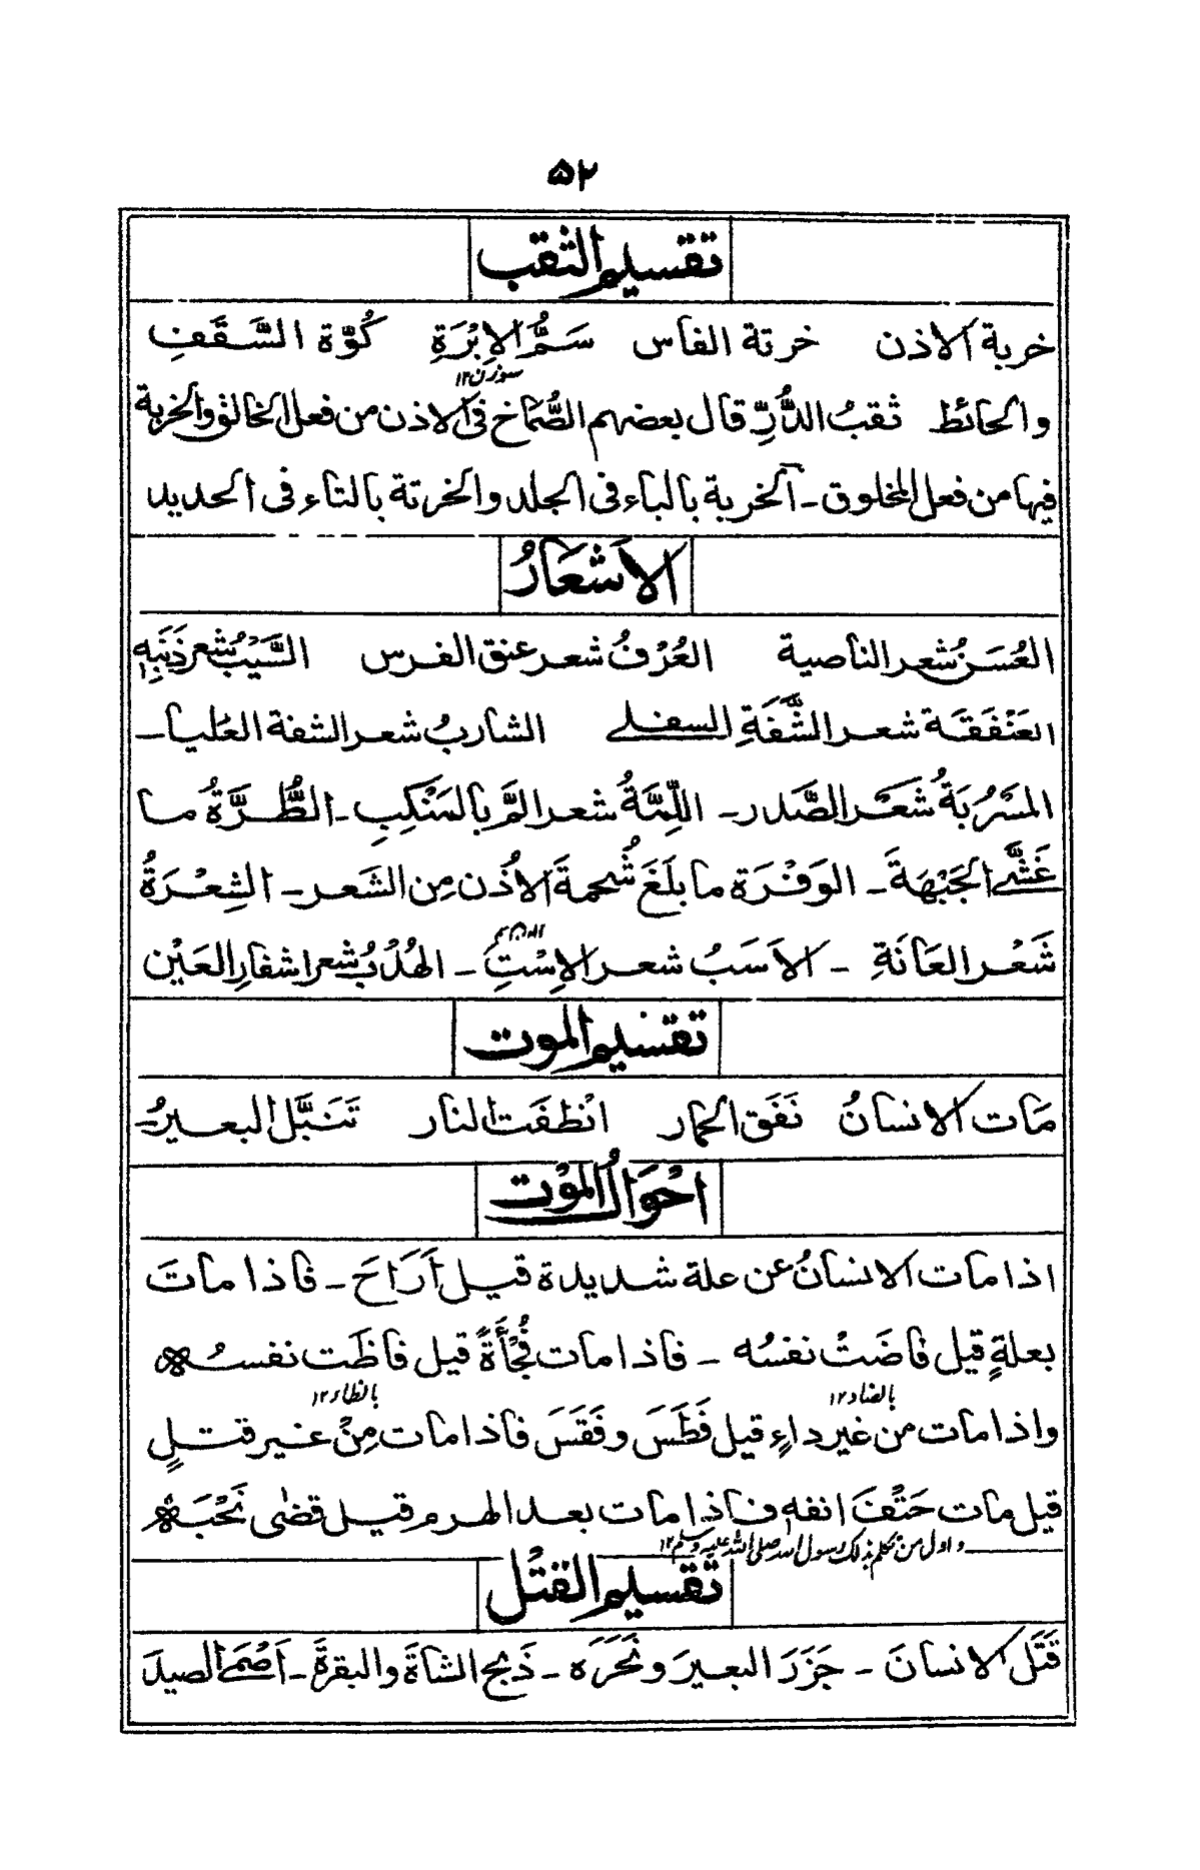 ۵۲
تقسیم الثقب
خربة الاذن خرتة الفاس سَمُّ الاِبْرَةِ كُوّة السَّقَفِ
سوزن۱۲
والحائط ثقبُ الدُّرِّ قال بعضهم الصُّمَاخ فی الاذن من فعل الخالق والخربة
فیها من فعل المخلوق ـ آلخربة بالباء فی الجلد والخرتة بالتاء فی الحدید
الاَشْعَارُ
العُسَنُ شعر الناصیة العُرْفُ شعر عنق الفرس السَّبِیْبُ شعر ذَنَبِه
العَنْفَقَة شعر الشَّفَةِ السفلے الشاربُ شعر الشفة العُلیا ـ
المَسْرُبَةُ شَعَر الصَّدر ـ اللِّمَّةُ شعر المّ بالمَنْکِبِ ـ الطُّرَّةُ ما
غَشَّے الجَبْهَةَ ـ الوَفْرَة ما بلَغَ شُحمةَ الاُذُن مِن الشَعر ـ الشِعْرَةُ
شَعْر العَانَةِ ـ الاَسَبُ شعر الاِسْتِ ـ الهُدْبُ شعر اشفار العَیْن
تقسیم الموت
مَات الانسانُ نَفَق الحمار انْطفَت النار تَنَبَّل البعیرُ
احْوَالُ المَوْت
اذا مات الانسانُ عن علة شدیدة قیل اَرَاحَ ـ فاذا ماتَ
بعلةٍ قیل فاضَتْ نفسُه ـ فاذا مات فُجْأَةً قیل فاظَت نفسُه
بالضاد۱۲ بالظاء۱۲
واذا مات من غیر داءٍ قیل فَطَسَ وفَقَسَ فاذا مات مِنْ غیر قتلٍ
قیل مات حَتْفَ انفه فاذا مات بعد الهرم قیل قضٰی نَحْبَه
واول من تکلم بذلک رسول الله صلی الله علیه وسلم۱۲
تقسیم القتل
قَتَل الانسانَ ـ جَزَرَ البعیرَ ونَحَرَه ـ ذَبح الشاةَ والبقرةَ ـ اَصْمَے الصیدَ